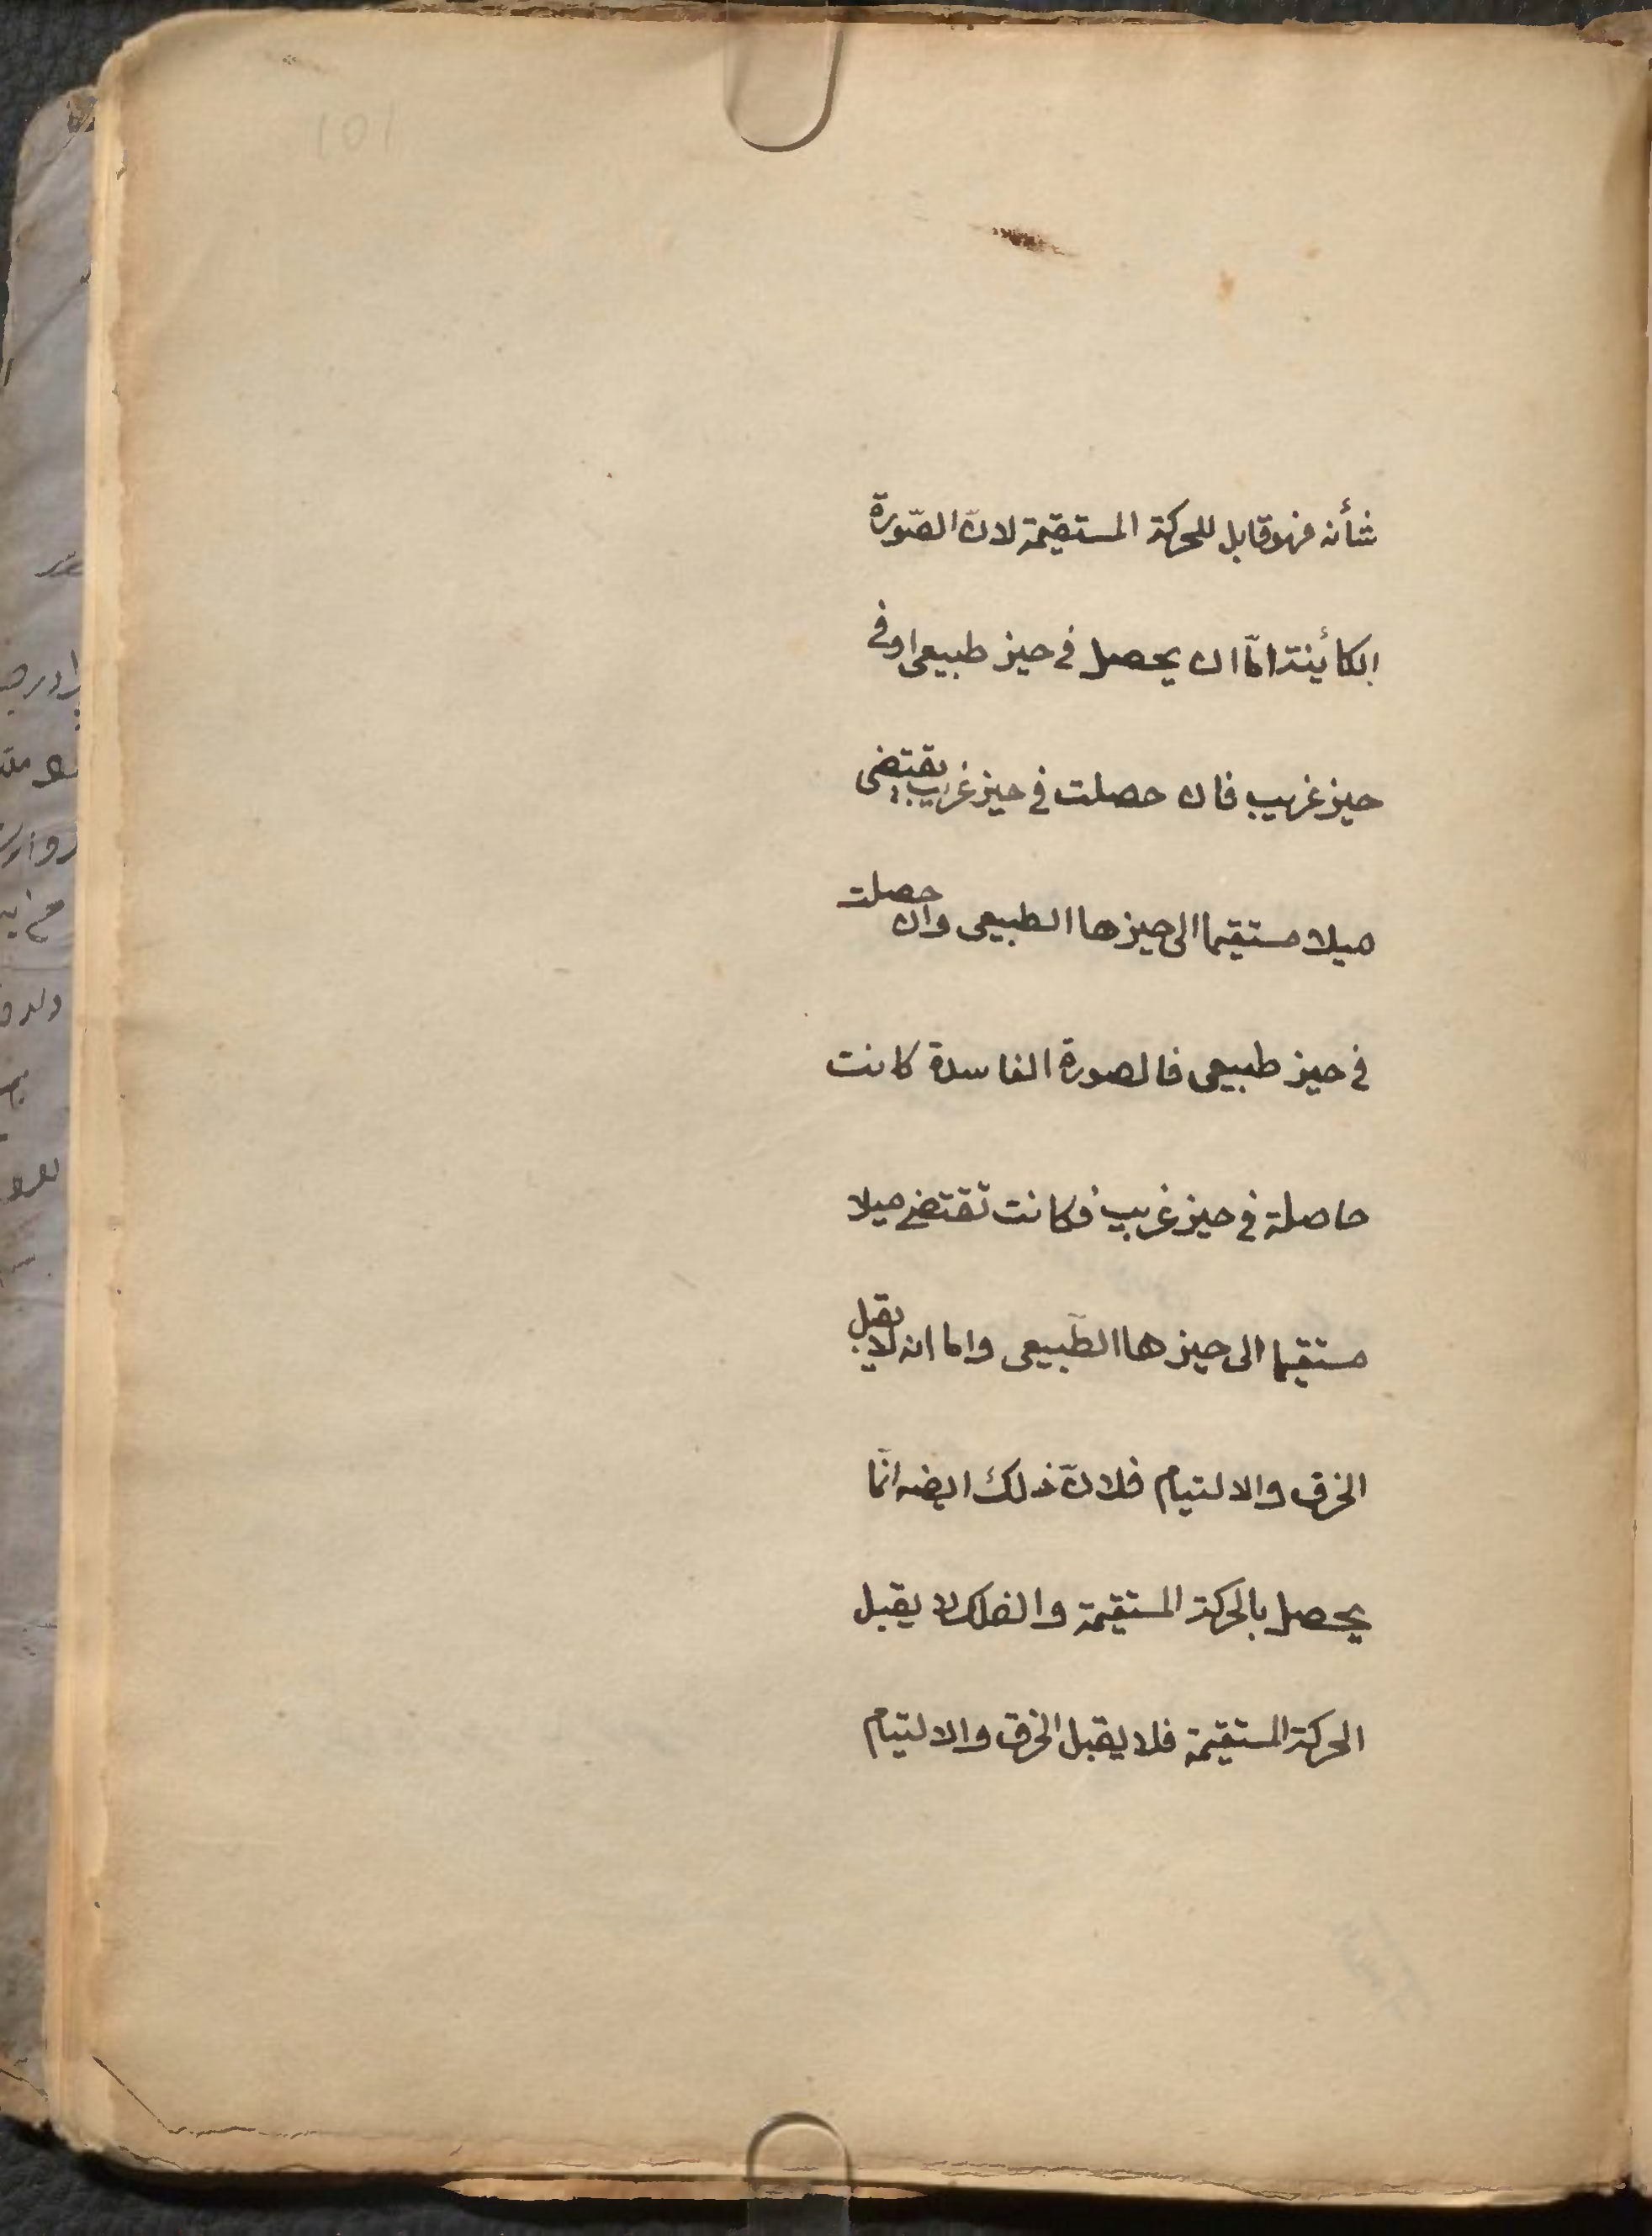 101
شأنه فهو قابل للحركة المستقيمة لانّ الصّورة
الكأينة امّا ان يحصل فى حيز طبيعى او فى
حيز غريب فان حصلت فى حيز غريب يقتضى
ميلا مستقيما الى حيزها الطبيعى وان حصلت
فى حيز طبيعى فالصورة الفاسدة كانت
حاصلة فى حيز غريب فكانت تقتضى ميلا
مستقيما الى حيزها الطّبيعى واما انه لا يقبل
الخرق والالتيام فلانّ ذلك ايضه انّما
يحصل بالحركة المستقيمة والفلك لا يقبل
الحركة المستقيمة فلا يقبل الخرق والالتيام